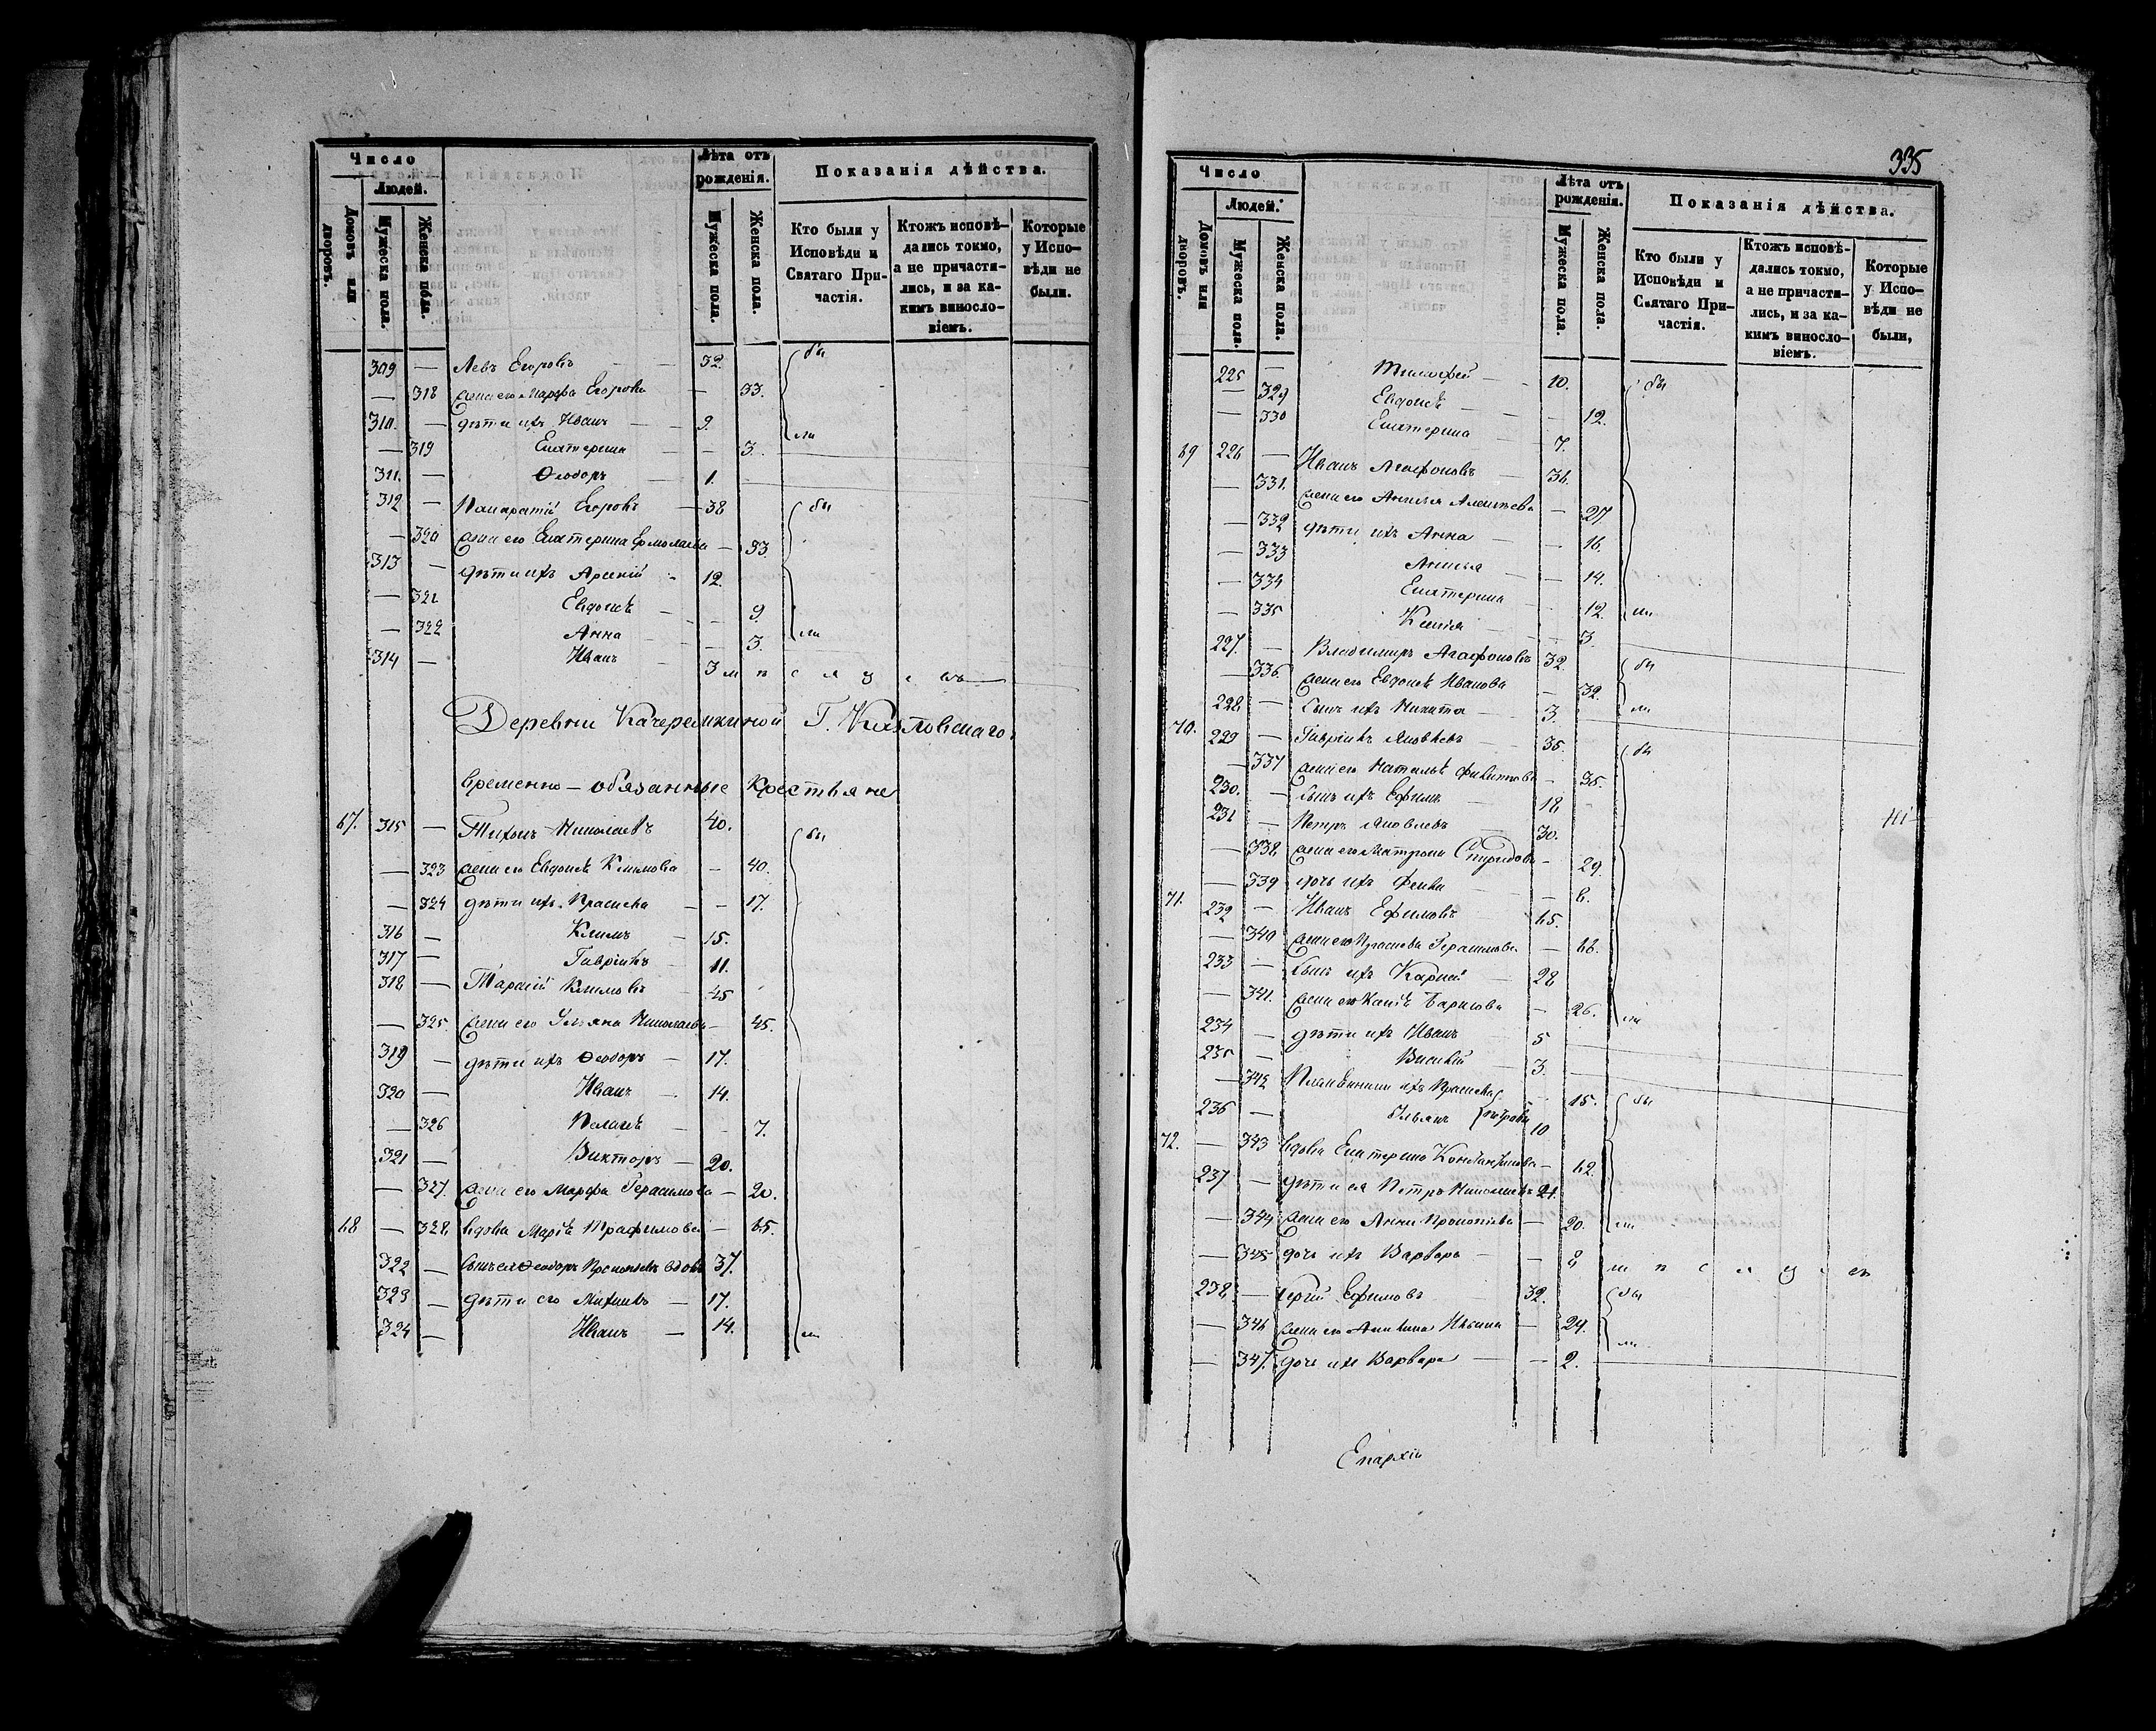 Число
Людей.
Домовъ или дворовъ.
Мужеска пола.
Женска пола.
Лѣта отъ рожденія.
Мужеска пола.
Женска пола.
Показанія дѣйства.
Кто были у Исповѣди и Святаго Причастія.
Ктожъ исповѣдались токмо, а не причастились, и за какимъ винословіемъ.
Которые у Исповѣди не были.
309 — Левъ Егоровъ — 32. бы
— 318 жена его Марфа Егорова — 33.
310. — дѣти ихъ Иванъ — 9. ли
— 319 Екатерина — 3.
311. — Ѳеодоръ — 1.
312 — Панкратій Егоровъ — 38 бы
— 320 жена его Екатерина Ермолаева — 33.
313 — дѣти ихъ Арсеній — 12.
— 321 Евдокія — 9.
— 322 Анна — 3. ли
314 — Иванъ 3 м п с л у с въ
Деревни Качеремкиной Г. Козловскаго.
временно-обязанные Крестьяне
67. 315 — Тихонъ Николаевъ 40. бы
— 323 жена его Евдокія Климова — 40.
— 324 дѣти ихъ Праскева — 17.
316 — Климъ — 15.
317 — Гавріилъ — 11.
318 — Тарасій Климовъ — 45
— 325. жена его Ульяна Николаева — 45.
319 — дѣти ихъ Ѳеодоръ — 17.
320 — Иванъ — 14.
— 326 Пелагія — 7.
321 — Викторъ — 20.
— 327. жена его Марфа Герасимова — 20.
68 — 328 вдова Марія Трафимова — 65.
322 — сынъ ея Ѳеодоръ Прокопьевъ вдовъ 37.
323 — дѣти его Михаилъ — 17.
324 — Иванъ — 14. ли
335
Число
Людей.
Домовъ или дворовъ.
Мужеска пола.
Женска пола.
Лѣта отъ рожденія.
Мужеска пола.
Женска пола.
Показанія дѣйства.
Кто были у Исповѣди и Святаго Причастія.
Ктожъ исповѣдались токмо, а не причастились, и за какимъ винословіемъ.
Которые у Исповѣди не были,
225 — Тимофей — 10. бы
— 329 Евдокія — 12.
— 330 Екатерина — 7.
69 226 — Иванъ Агафоновъ — 36.
— 331. жена его Анисья Алексеева — 27
— 332 дѣти ихъ Анна — 16.
— 333 Анисья — 14.
— 334 Екатерина — 12. ли
— 335 Ксенія — 3.
227. — Владимиръ Агафоновъ 32. бы
— 336. жена его Евдокія Иванова — 32.
228 — сынъ ихъ Никита — 3. ли
70. 229 — Гавріилъ Яковлевъ — 35. бы
— 337 жена его Наталія Филиппова — 35.
230. — сынъ ихъ Ефимъ — 18
231 — Петръ Яковлевъ — 30.
— 338 жена его Матрона Спиридова — 29.
— 339 дочь ихъ Фекла — 6.
71. 232 — Иванъ Ефимовъ — 65.
— 340 жена его Праскева Герасимова — 66.
233 — сынъ ихъ Карпій — 28
— 341. жена его Борисова — 26. ли
234 — дѣти ихъ Иванъ — 5
235 — Василій — 3.
— 342 Племянники ихъ Праскева — 15. бы
236 — Ульянъ Петровы 10
72. — 343 вдова Екатерина Константинова — 62.
237 — дѣти ея Петръ Николаевъ 21.
— 344 жена его Анна Прокопіева — 20. ли
— 345 дочь ихъ Варвара — 8 м п с л у с въ
238 — Сергій Ефимовъ 32. бы
— 346 жена его Акилина Ильина — 24. ли
— 347. дочь ихъ Варвара — 2.
Епархіи